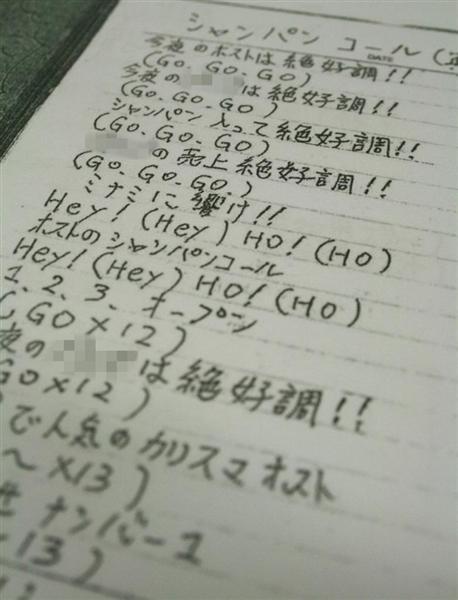 シャンパン コール
DATE
今夜のホストは絶好調!!
(GO、GO、GO)
今夜の は絶好調!!
(GO、GO、GO)
シャンパン入って絶好調!!
(GO、GO、GO)
の売上絶好調!!
(GO、GO、GO、)
ミナミに響け!!
Hey!(Hey)HO!(HO)
ホストのシャンパンコール
Hey!(Hey)HO!(HO)
1、2、3、オープン
GO×12)
夜の は絶好調!!
GO×12)
で人気のカリスマホスト
〜×13)
ナンバー1
13)